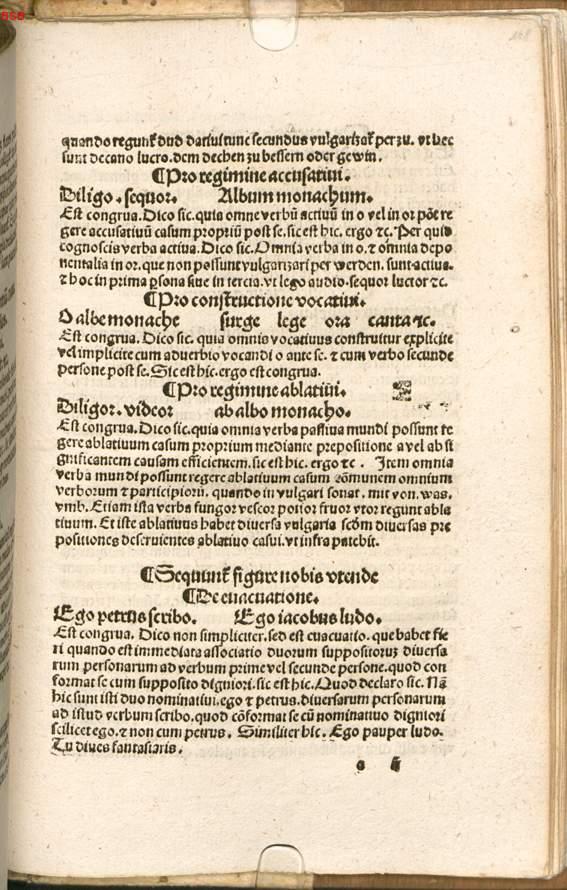 SSB
168
quando regunt̃ duo dariui tunc secundus vulgarizat̃ per zu. vt hec
sunt decano lucro. dem dechen zu bessern oder gewin.
¶Pro regimine accusatiui.
Diligo. sequor. Album monachum.
Est congrua. Dico sic. quia omne verbũ actiuũ in o vel in or põt re
gere accusatiuũ casum propriũ post se. sic est hic. ergo ⁊c. Per quid
cognoscis verba actiua. Dico sic. Omnia verba in o. ⁊ omnia depo
nentalia in or. que non possunt vulgarizari per werden. sunt actiua.
⁊ hoc in prima ꝑsona siue in tercia. vt lego audio. sequor luctor ⁊c.
¶Pro constructione vocatiui.
O albe monache surge lege ora canta ⁊c.
Est congrua. Dico sic. quia omnis vocatiuus construitur explicite
vel implicite cum aduerbio vocandi o ante se. ⁊ cum verbo secunde
persone post se. Sic est hic. ergo est congrua.
¶Pro regimine ablatiui.
Diligor. videor ab albo monacho.
Est congrua. Dico sic. quia omnia verba passiua mundi possunt re
gere ablatiuum casum proprium mediante prepositione a vel ab si
gnificantem causam efficientem. sic est hic. ergo ⁊c. Item omnia
verba mundi possunt regere ablatiuum casum cõmunem omnium
verborum ⁊ participiorũ. quando in vulgari sonat. mit von. was.
vmb. Etiam ista verba fungor vescor potior fruor vtor regunt abla
tiuum. Et iste ablatiuus habet diuersa vulgaria scðm diuersas pre
positiones deseruientes ablatiuo casui. vt infra patebit.
¶Sequunt̃ figure nobis vtende
¶De euacuatione.
Ego petrus scribo. Ego iacobus ludo.
Est congrua. Dico non simpliciter. sed est euacuatio. que habet fie
ri quando est immediata associatio duorum suppositoruꝫ diuersa
rum personarum ad verbum prime vel secunde persone. quod con
format se cum supposito digniori. sic est hic. Quod declaro sic. Nã
hic sunt isti duo nominatiui. ego ⁊ petrus. diuersarum personarum
ad istud verbum scribo. quod cõformat se cũ nominatiuo digniori
scilicet ego. ⁊ non cum petrus. Similiter hic. Ego pauper ludo.
Tu diues fantasiaris.